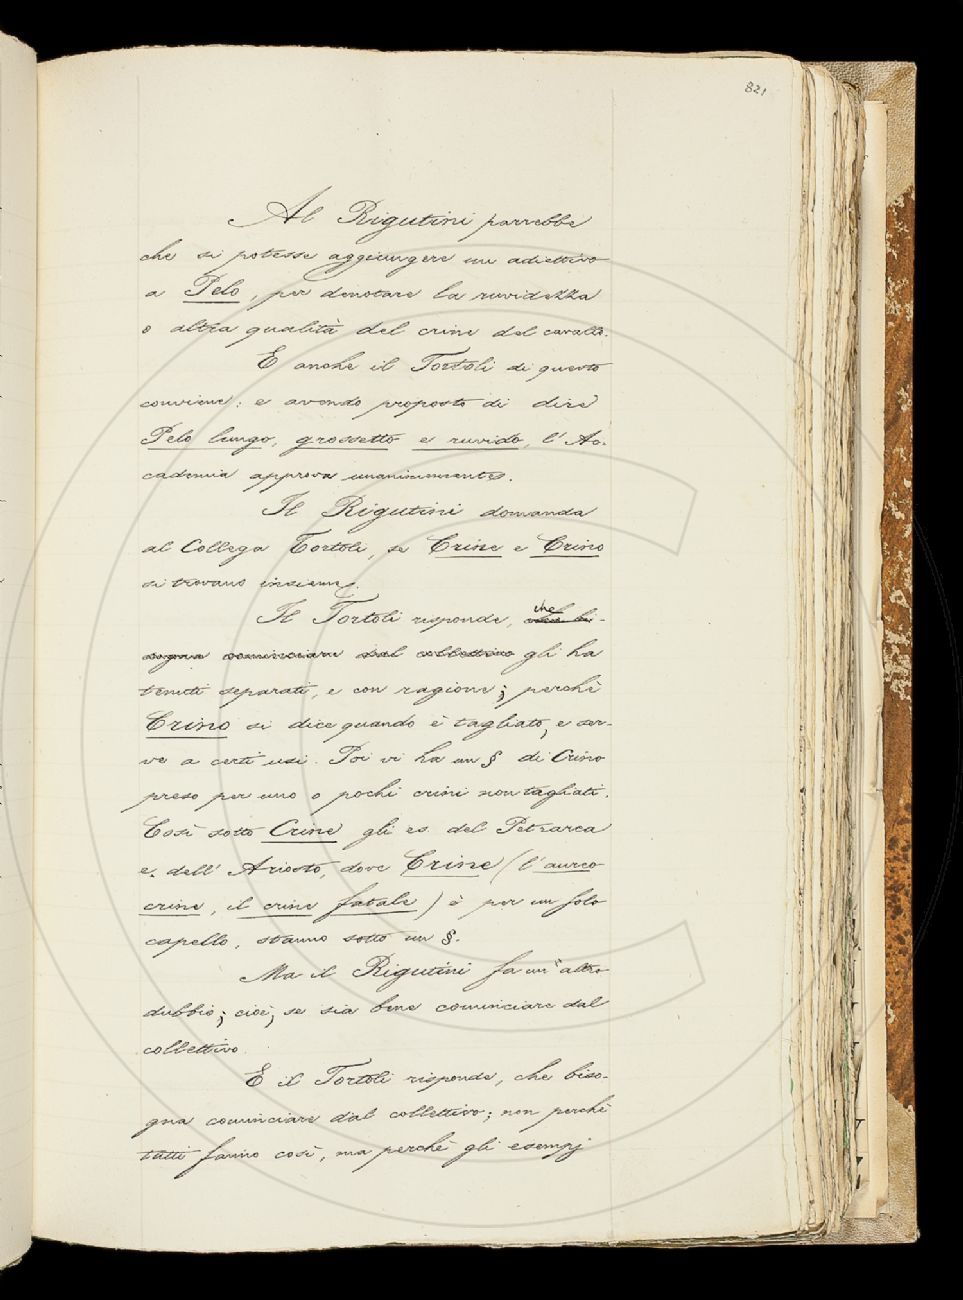 821
Al Rigutini parrebbe
che si potesse aggiungere un adiettivo
a Pelo, per denotare la ruvidezza
o altra qualità del crine del cavallo.
E anche il Tortoli di questo
conviene: e avendo proposto di dire
Pelo lungo, grossetto e ruvido, l'Ac-
cademia approva unanimemente.
Il Rigutini domanda
al Collega Tortoli, se Crine e Crino
si trovano insieme.
Il Tortoli risponde, che bi-
che
sogna cominciare dal collettivo gli ha
tenuti separati, e con ragione; perchè
Crino si dice quando è tagliato, e ser-
ve a certi usi. Poi vi ha un § di Crino
preso per uno o pochi crini non tagliati.
Così sotto Crine gli es. del Petrarca
e dell'Ariosto, dove Crine (l'aureo
crine, il crine fatale) è per un solo
capello, stanno sotto un §.
Ma il Rigutini fa un altro
dubbio; cioè, se sia bene cominciare dal
collettivo.
E il Tortoli risponde, che biso-
gna cominciare dal collettivo; non perchè
tutti fanno così, ma perchè gli esempj